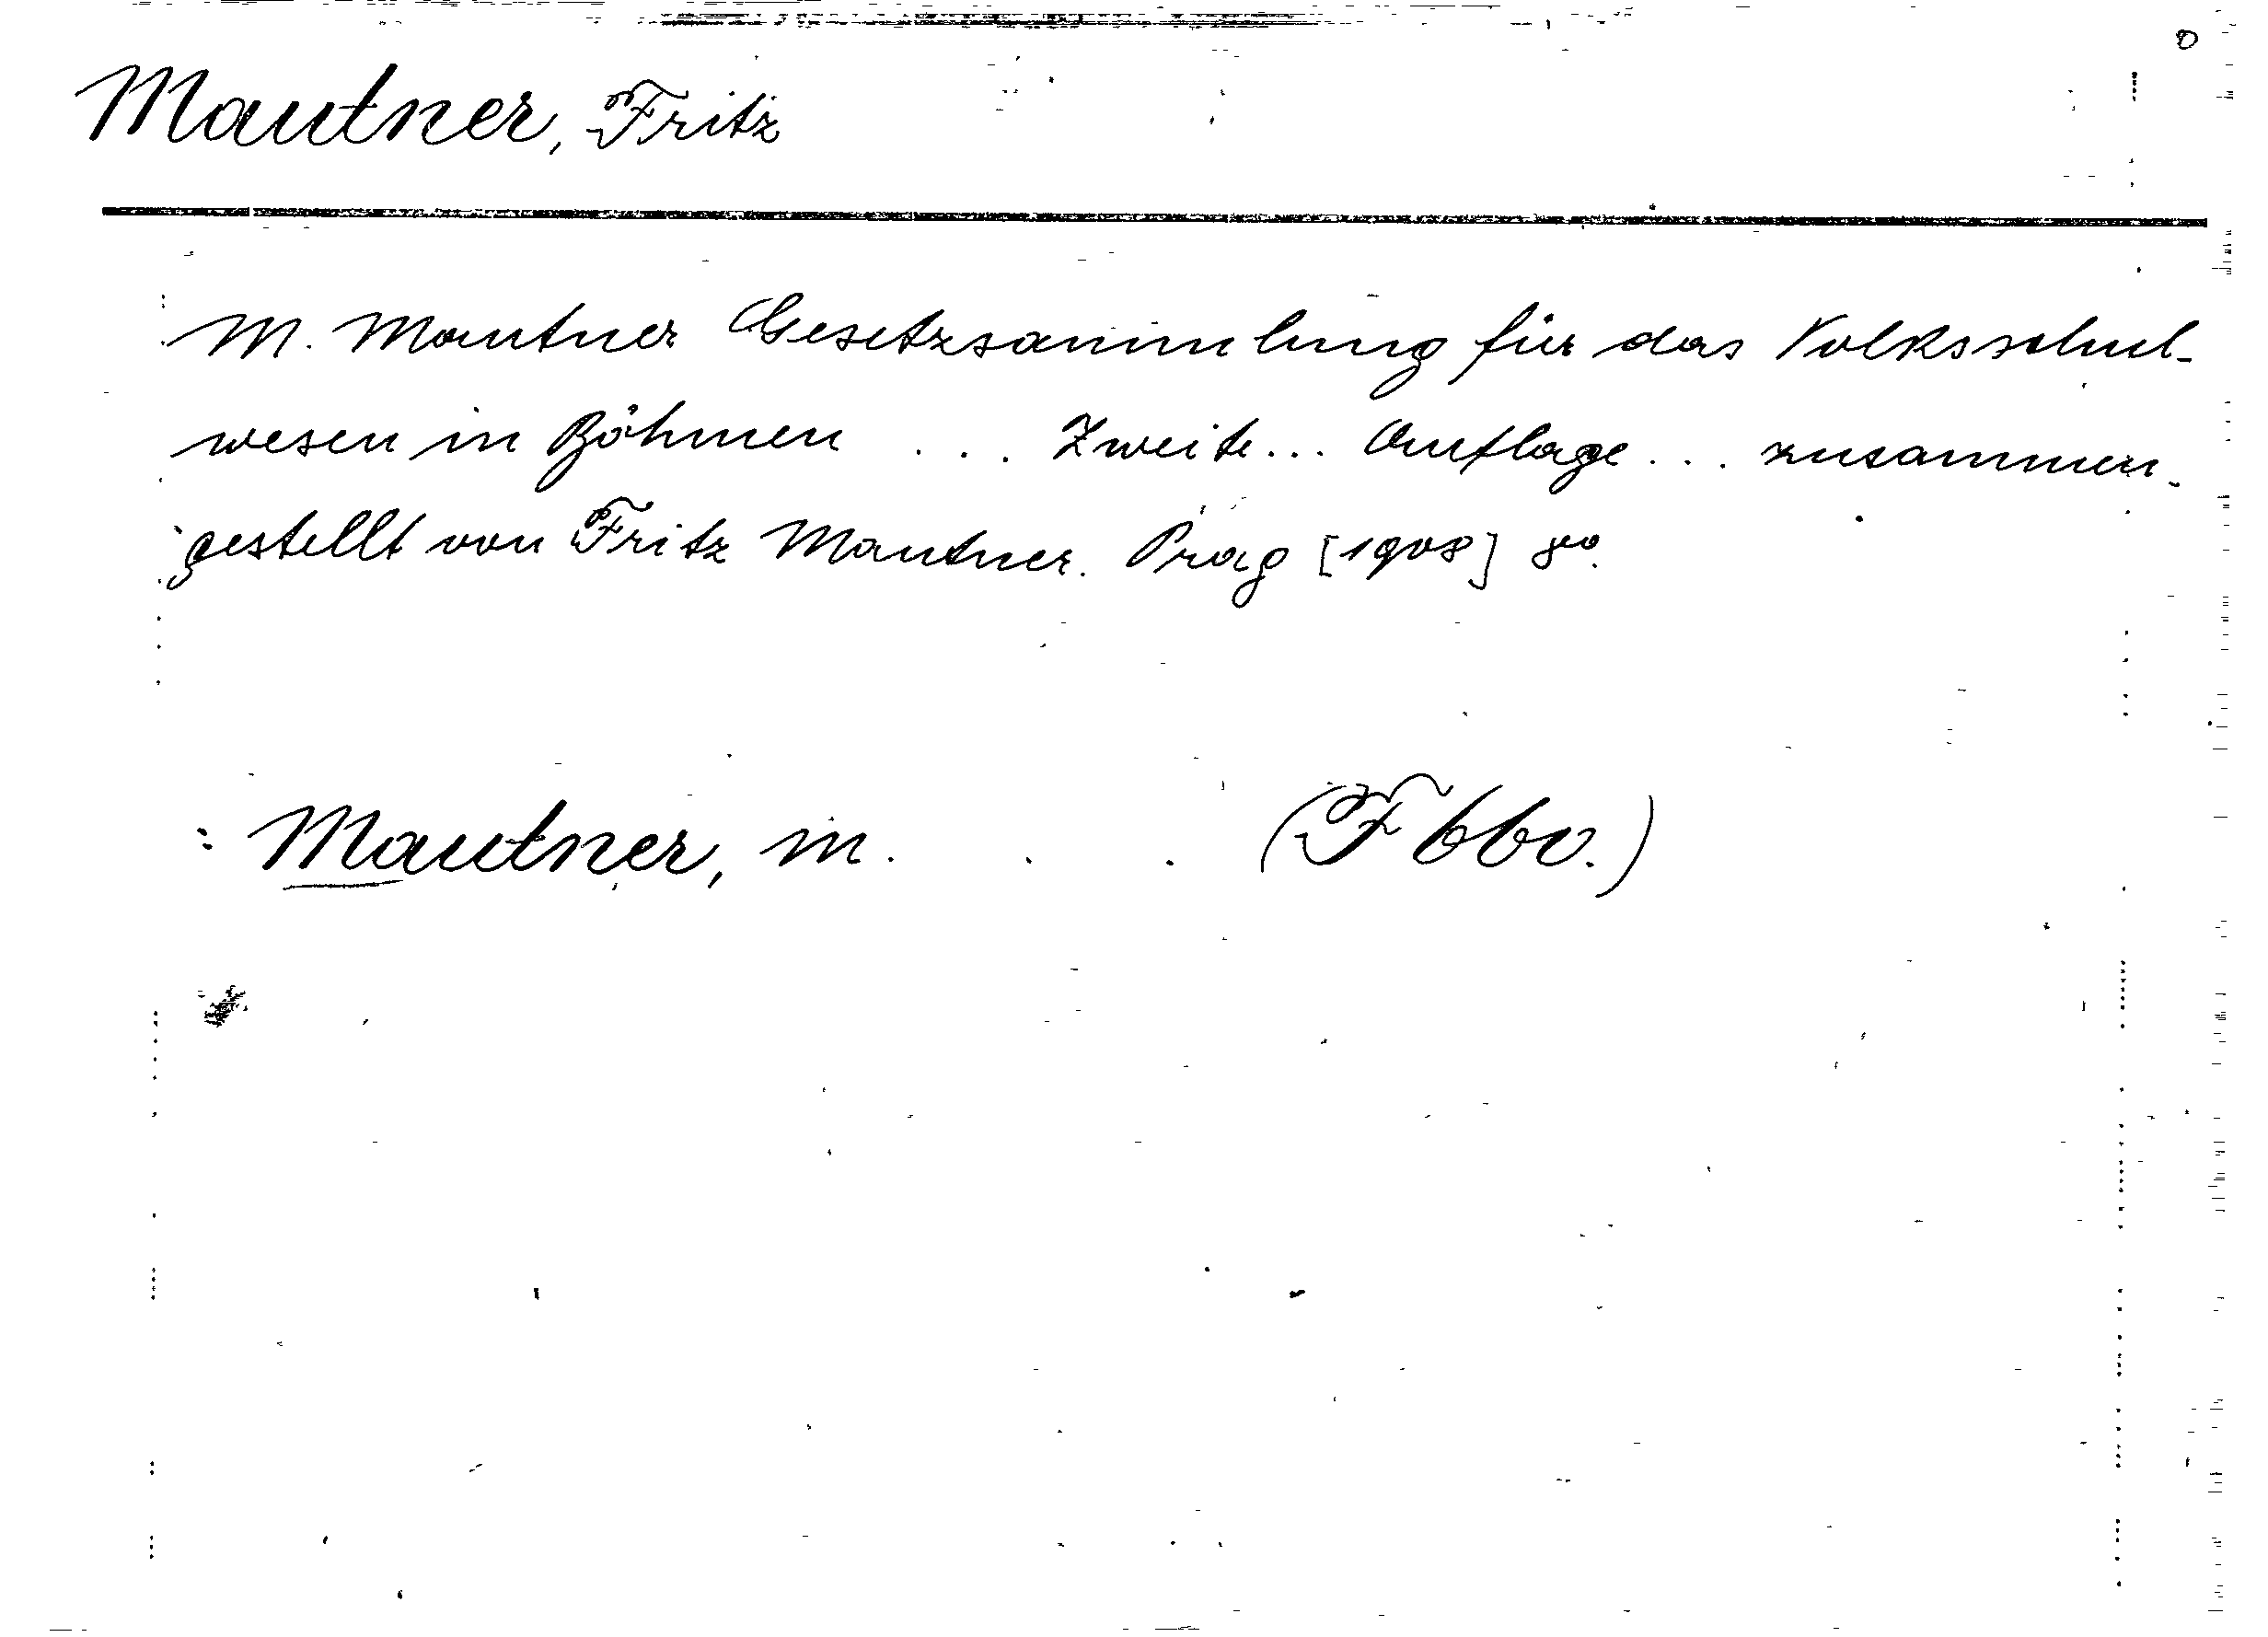 Mautner, Fritz
M. Mautner Gesetzsammlung für das Volksschul-
wesen in Böhmen ... Zweite ... Auflage ... zusammen-
gestellt von Fritz Mautner. Prag [1908] 8o.
: Mautner, M. . . (F bbv.)